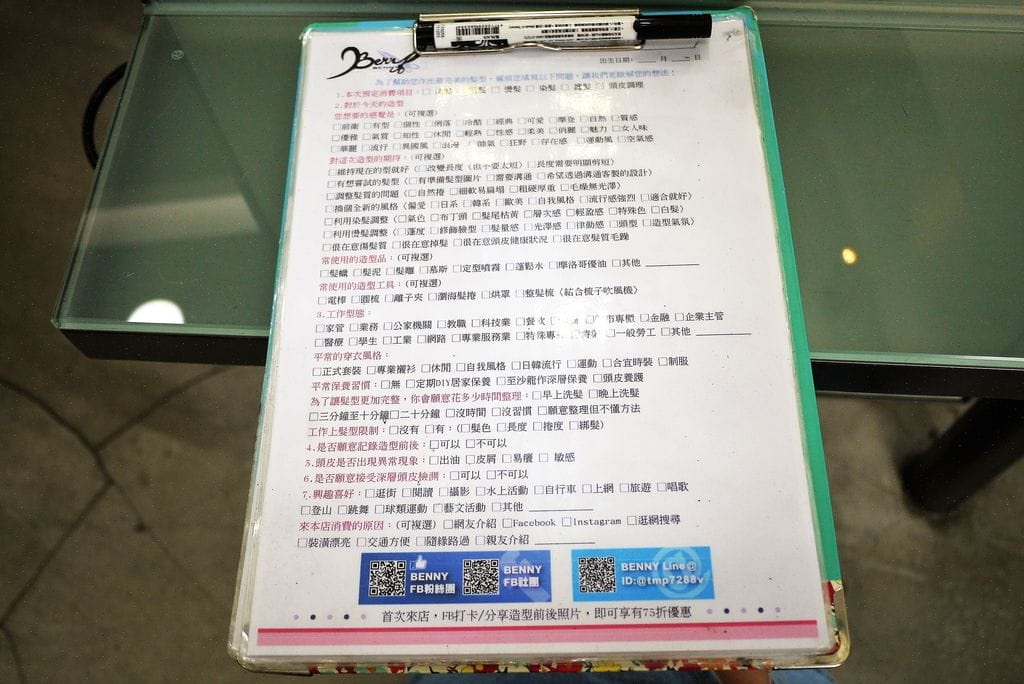 Benny
出生日期: ___月___日
為了幫助您作出最完美的髮型，需相您填寫以下問題，讓我們更瞭解您的想法！
1.本次預定消費項目: □剪髮 □燙髮 □染髮 □護髮 □頭皮調理
2.對於今天的造型
您想要的感覺是:(可複選)
□前衛 □有型 □個性 □俐落 □冷酷 □經典 □可愛 □摩登 □自然 □質感
□優雅 □氣質 □知性 □休閒 □輕熟 □性感 □柔美 □俏麗 □魅力 □女人味
□華麗 □流行 □異國風 □浪漫 □帥氣 □狂野 □存在感 □運動風 □空氣感
對這次造型的期待:(可複選)
□維持現在的型就好〈□改變長度〈但不要太短〉□長度需要明顯剪短〉
□有想嘗試的髮型〈□有準備髮型圖片 □需要溝通 □希望透過溝通客製的設計〉
□調整髮質的問題〈□自然捲 □細軟易扁塌 □粗硬厚重 □毛燥無光澤〉
□換個全新的風格〈偏愛 □日系 □韓系 □歐美 □自我風格 □流行感強烈 □適合就好〉
□利用染髮調整〈□氣色 □布丁頭 □髮尾枯黃 □層次感 □輕盈感 □特殊色 □白髮〉
□利用燙髮調整〈□蓬度 □修飾臉型 □髮量感 □光澤感 □律動感 □頭型 □造型氣氛〉
□很在意傷髮質 □很在意掉髮 □很在意頭皮健康狀況 □很在意髮質毛躁
常使用的造型品:(可複選)
□髮蠟 □髮泥 □髮雕 □慕斯 □定型噴霧 □蓬鬆水 □摩洛哥優油 □其他 ________
常使用的造型工具:(可複選)
□電棒 □圓梳 □離子夾 □瀏海髮捲 □烘罩 □整髮梳〈結合梳子吹風機〉
3.工作型態:
□家管 □業務 □公家機關 □教職 □科技業 □餐飲 □市專櫃 □金融 □企業主管
□醫療 □學生 □工業 □網路 □專業服務業 □特殊專 □一般勞工 □其他 ________
平常的穿衣風格:
□正式套裝 □專業襯衫 □休閒 □自我風格 □日韓流行 □運動 □合宜時裝 □制服
平常保養習慣: □無 □定期DIY居家保養 □至沙龍作深層保養 □頭皮養護
為了讓髮型更加完整，你會願意花多少時間整理: □早上洗髮 □晚上洗髮
□三分鐘至十分鐘 □二十分鐘 □沒時間 □沒習慣 □願意整理但不懂方法
工作上髮型限制: □沒有 □有:(□髮色 □長度 □捲度 □綁髮)
4.是否願意記錄造型前後: □可以 □不可以
5.頭皮是否出現異常現象: □出油 □皮屑 □易癢 □ 敏感
6.是否願意接受深層頭皮檢測: □可以 □不可以
7.興趣喜好: □逛街 □閱讀 □攝影 □水上活動 □自行車 □上網 □旅遊 □唱歌
□登山 □跳舞 □球類運動 □藝文活動 □其他 __________
來本店消費的原因:(可複選) □網友介紹 □Facebook □Instagram □逛網搜尋
□裝潢漂亮 □交通方便 □隨緣路過 □親友介紹 _________
BENNY
FB粉絲團
BENNY
FB社團
BENNY Line@
ID:@tmp7288v
首次來店，FB打卡/分享造型前後照片，即可享有75折優惠